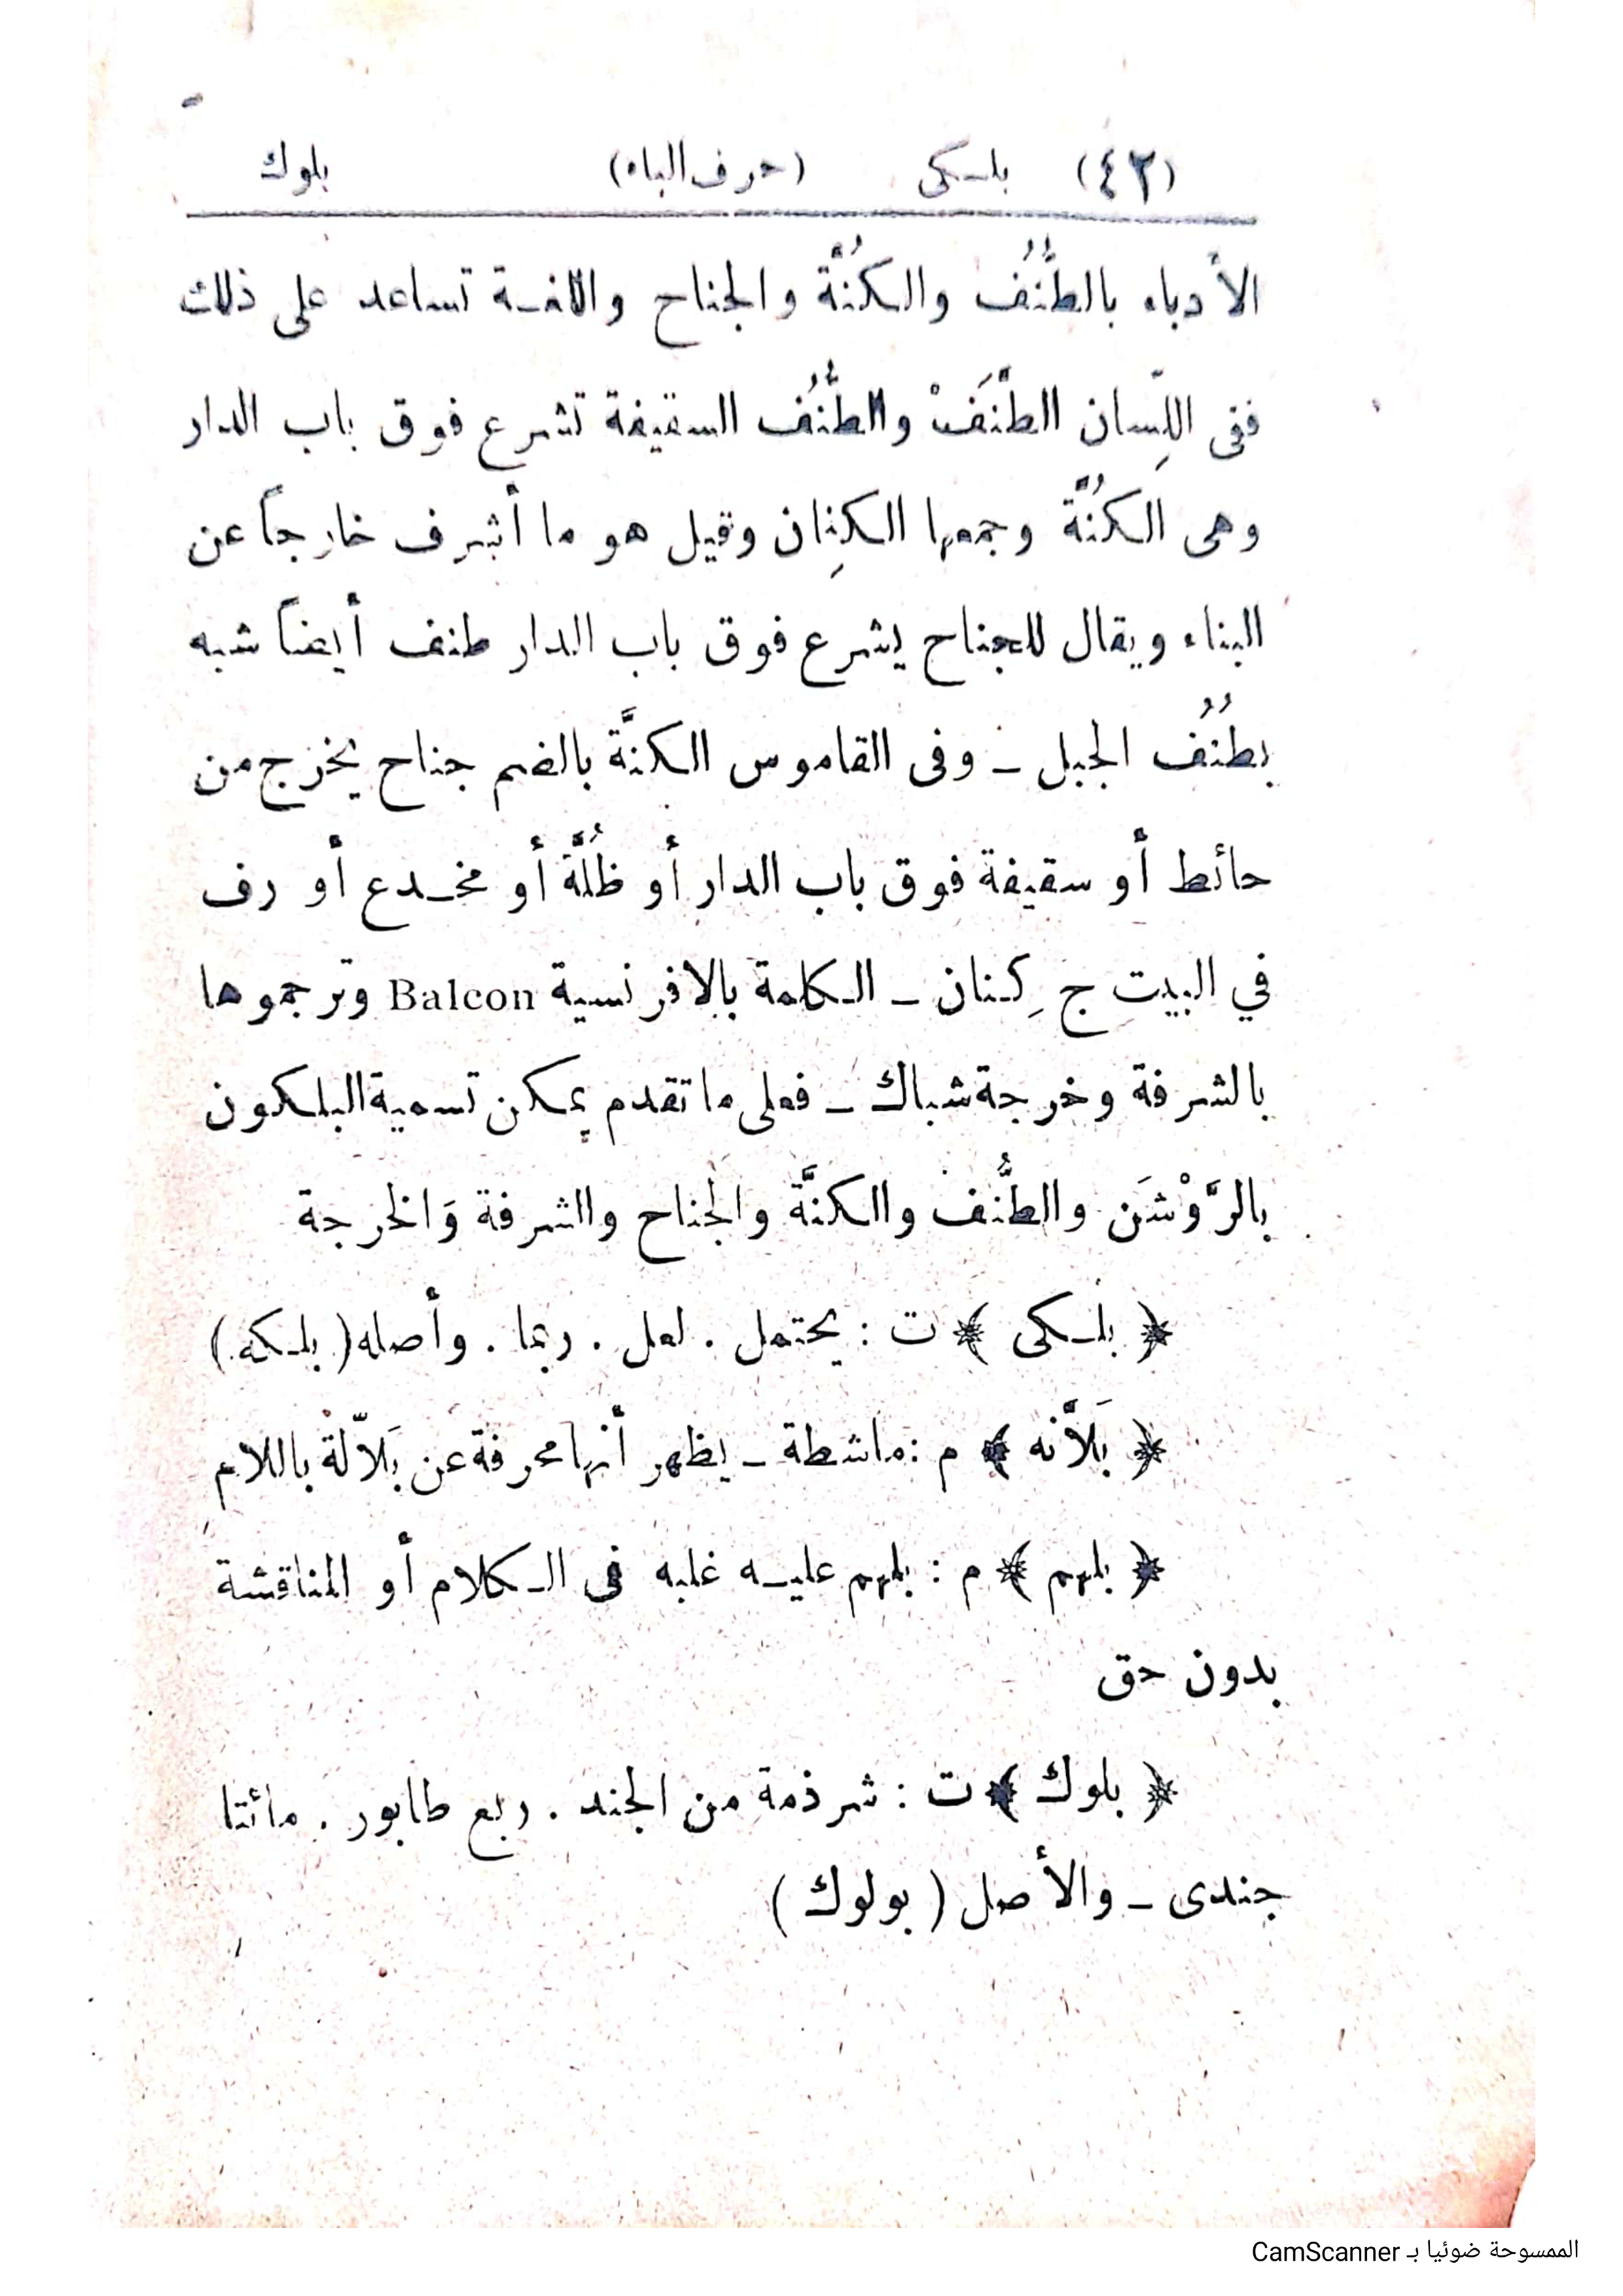 (٤٢) بلـكى (حرف الباء) بلوك
الأدباء بالطُّنُف والكُنَّة والجناح واللغـة تساعد على ذلك
ففى اللِّسان الطَّنَفْ والطُّنُف السقيفة تشرع فوق باب الدار
وهى الكُنَّة وجمعها الكِنان وقيل هو ما أشرف خارجاً عن
البناء ويقال للجناح يشرع فوق باب الدار طنف أيضاً شبه
بطُنُف الجبل ــ وفى القاموس الكنَّة بالضم جناح يخرج من
حائط أو سقيفة فوق باب الدار أو ظُلَّة أو مخـدع أو رف
في البيت ج كِنان ــ الكلمة بالافرنسية Balcon وترجموها
بالشرفة وخرجة شباك ــ فعلى ما تقدم يمكن تسمية البلكون
بالرَّوْشَن والطُّنف والكنَّة والجناح والشرفة وَالخرجة
﴿ بلـكى ﴾ ت : يحتمل . لعل . ربما . وأصله ( بلـكه )
﴿ بَلاَّنه ﴾ م : ماشطة ــ يظهر أنها محرفة عن بَلاّلة باللام
﴿ بلهم ﴾ م : بلهم عليـه غلبه فى الـكلام أو المناقشة
بدون حق
﴿ بلوك ﴾ ت : شرذمة من الجند . ربع طابور . مائتا
جندى ــ والأصل ( بولوك )
الممسوحة ضوئيا بـ CamScanner